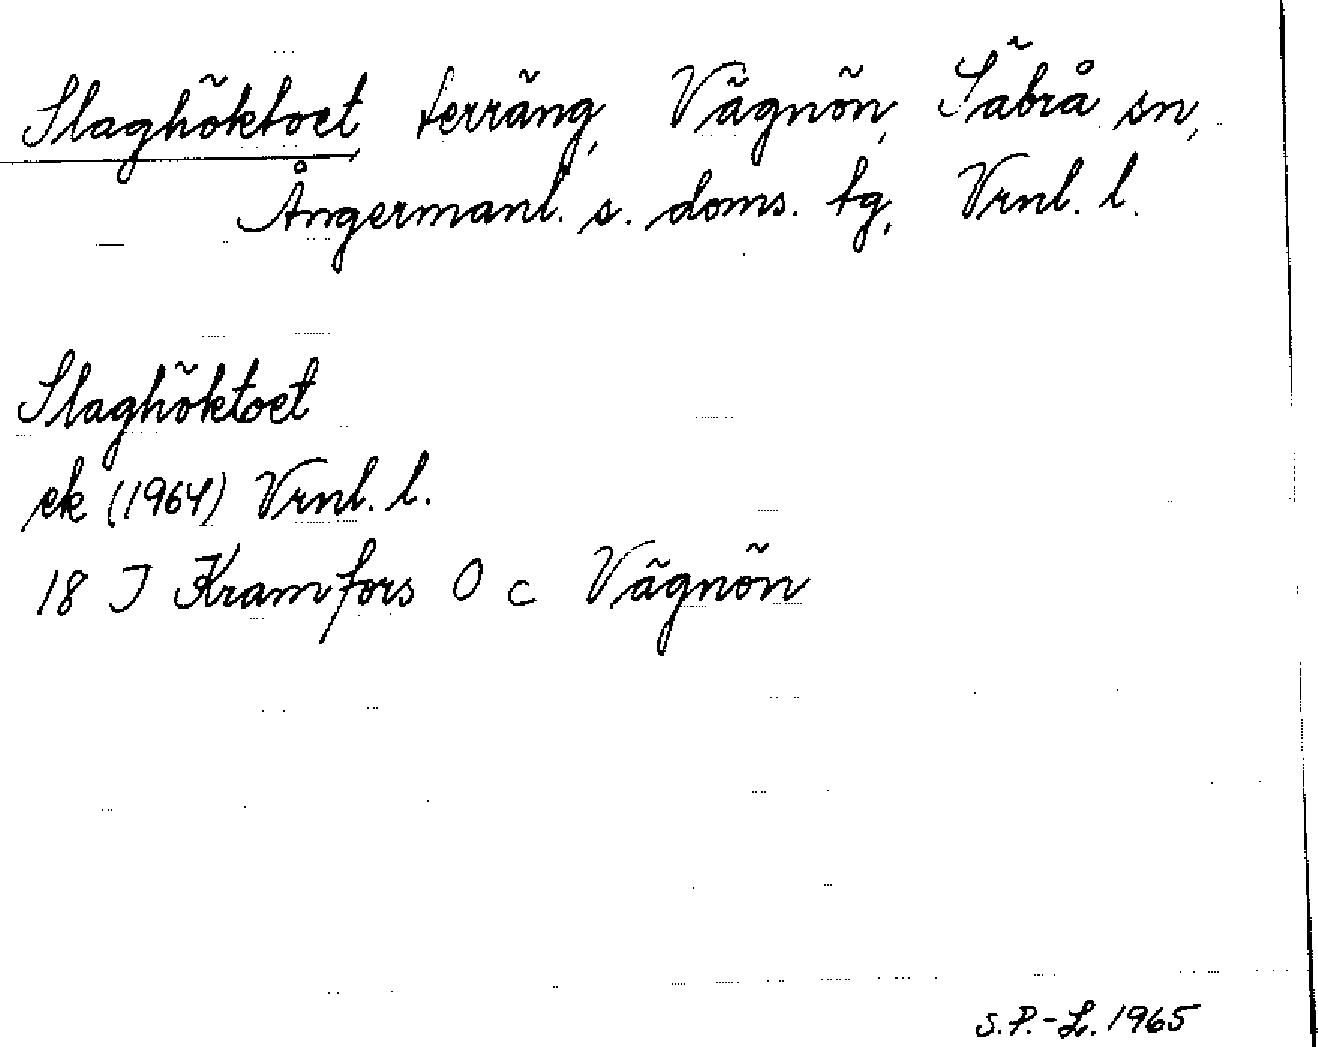 Slaghöktoet terräng, Vägnön, Säbrå sn,
Ångermanl. s. doms. tg, Vrnl. l.
Slaghöktoet
ek (1964) Vrnl. l.
18 I Kramfors O c Vägnön
S.P.-L. 1965